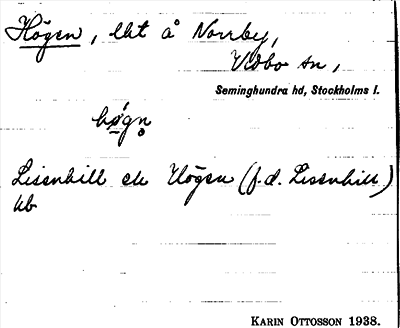 Högen, lht å Norrby,
Vidbo sn,
Seminghundra hd, Stockholms l.
hø̀gn̥
Lisenhill el. Högen (f.d. Lisenhill)
kb
KARIN OTTOSSON 1938.